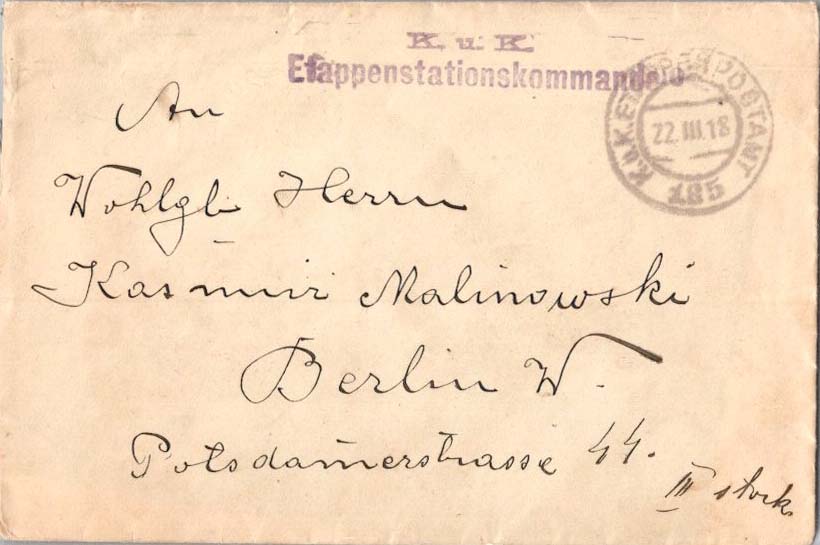 K. u. K.
Etappenstationskommando
K.u.K. ETAPPENPOSTAMT
22.III.18
185
An
Wohlgb Herrn
Kasimir Malinowski
Berlin W.
Potsdamerstrasse 44.
III stock